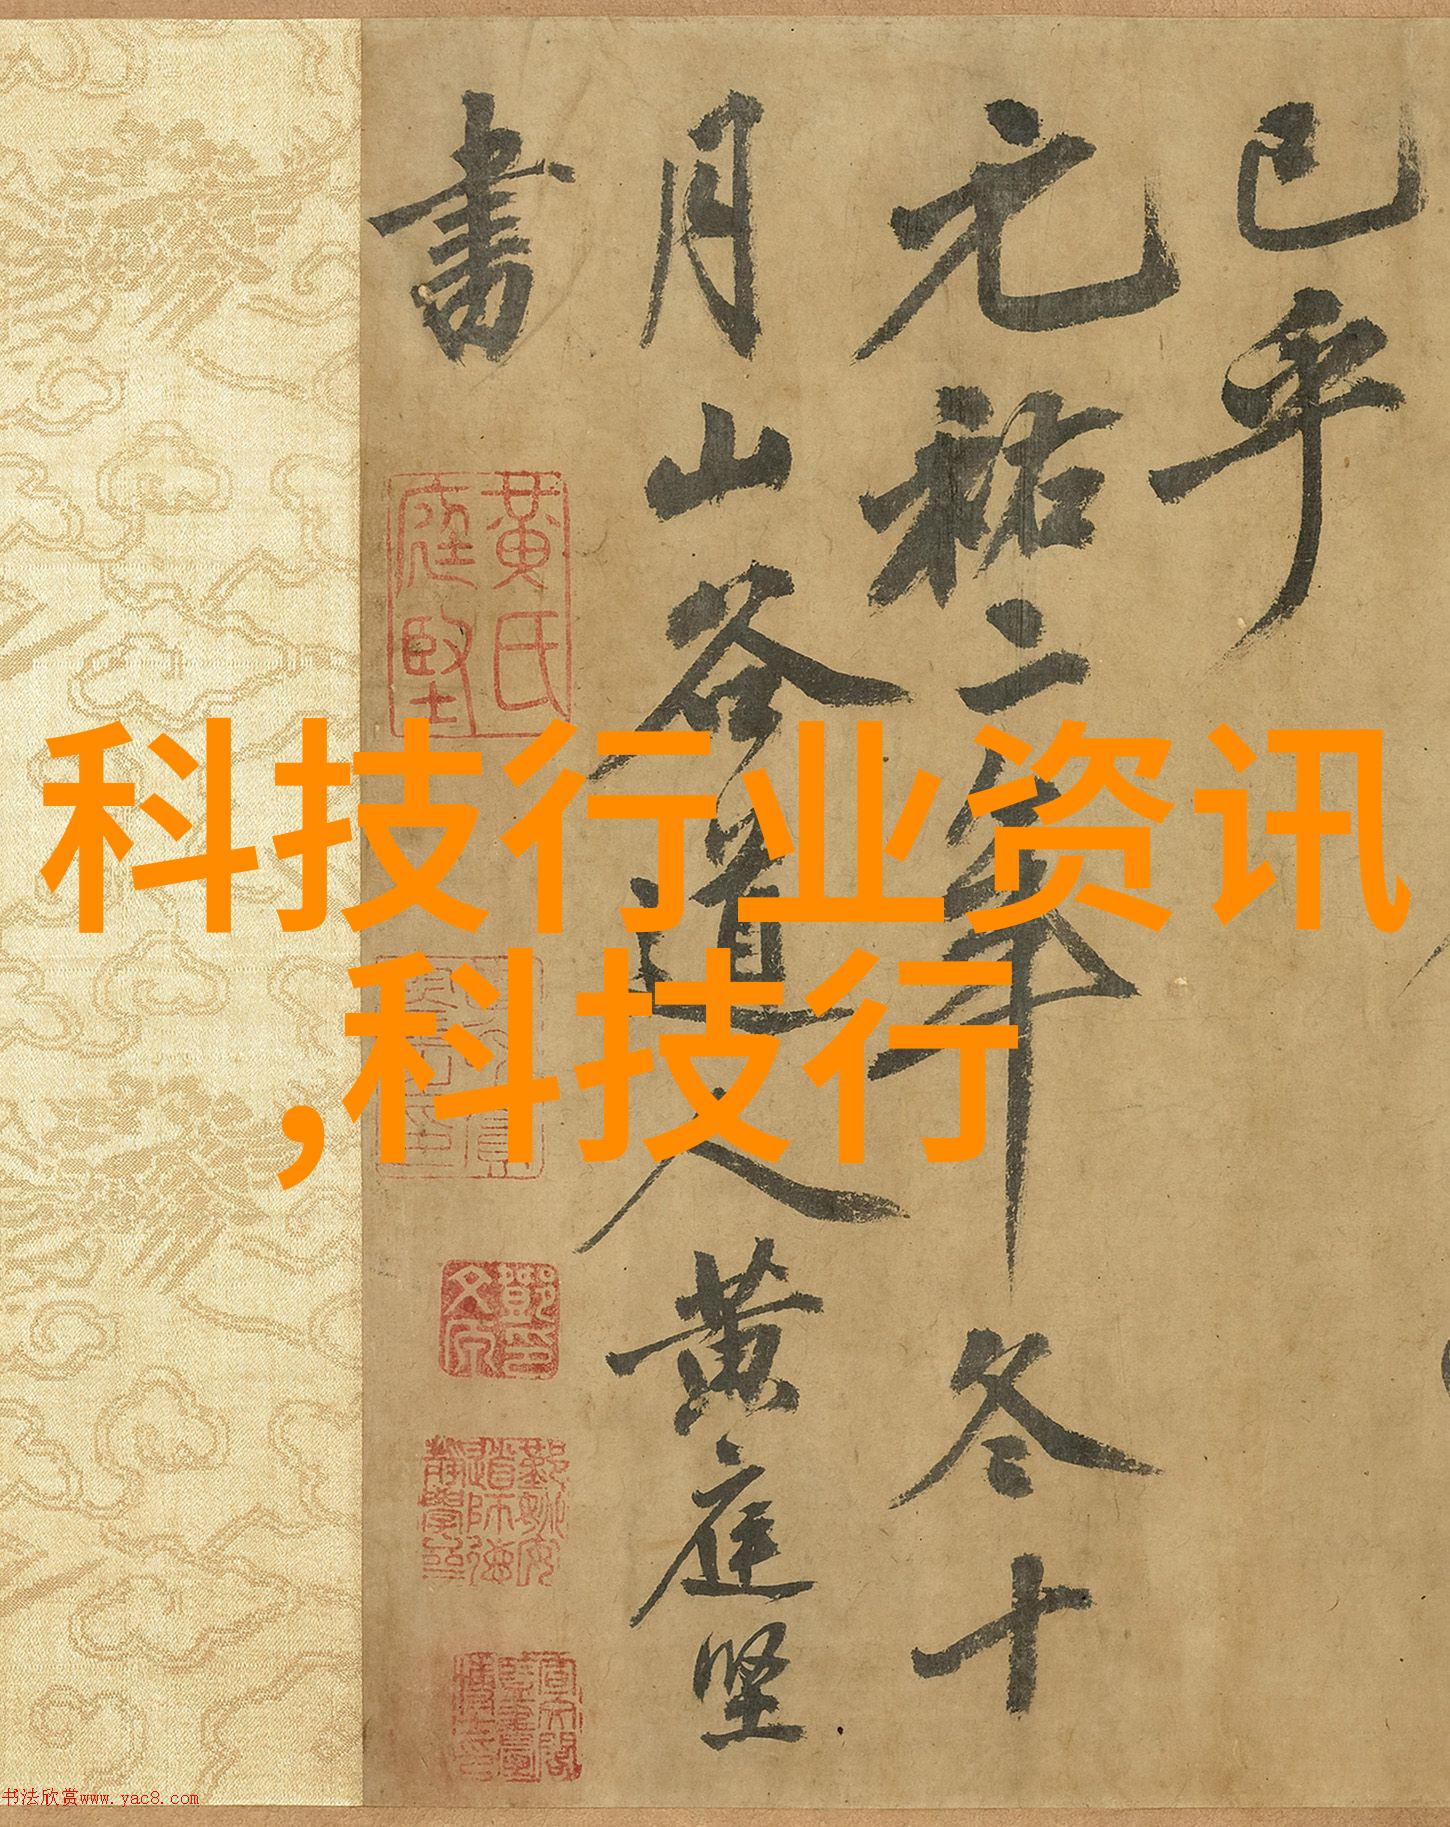 已乎
元祐二年冬十
月山谷道人黄庭坚
書
黄氏
庭堅
科技行业资讯
,科技行
书法欣赏www.yac8.com